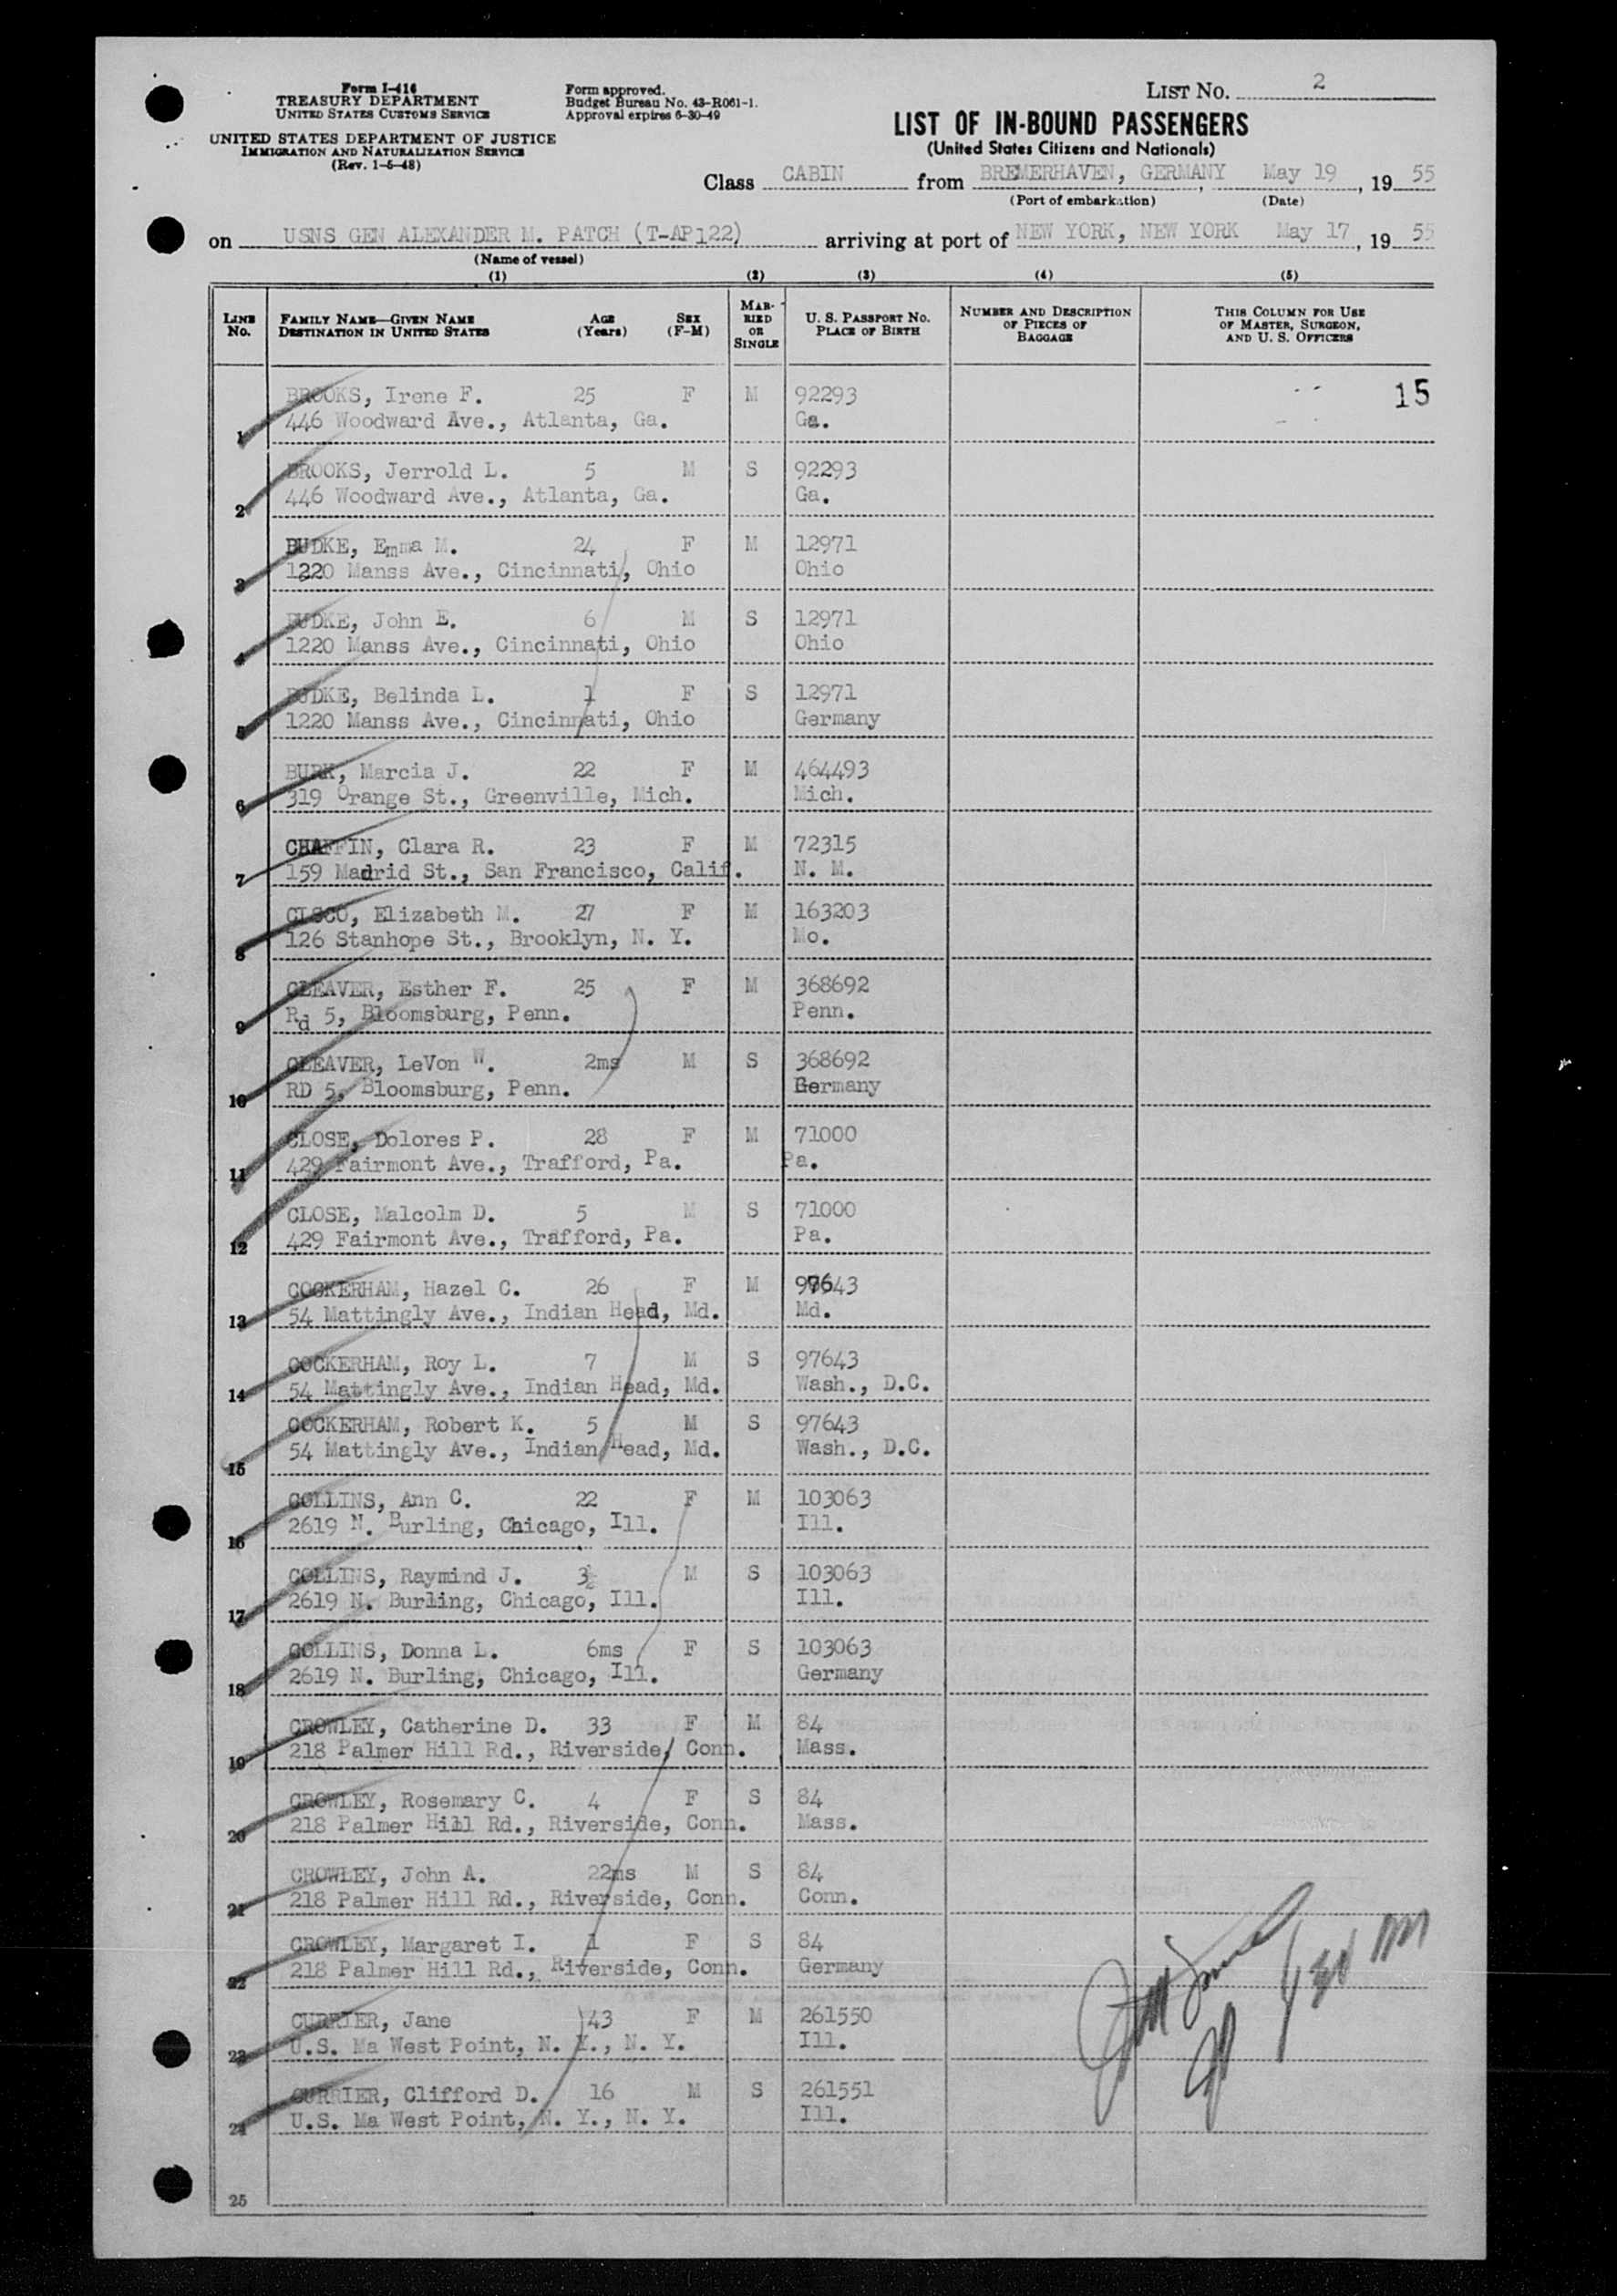 Form I-416
TREASURY DEPARTMENT
UNITED STATES CUSTOMS SERVICE
UNITED STATES DEPARTMENT OF JUSTICE
IMMIGRATION AND NATURALIZATION SERVICE
(Rev. 1-5-48)
Form approved.
Budget Bureau No. 43-R061-1.
Approval expires 6-30-49
LIST NO. 2
LIST OF IN-BOUND PASSENGERS
(United States Citizens and Nationals)
Class CABIN from BREMERHAVEN, GERMANY, May 19, 19 55
(Port of embarkation) (Date)
on USNS GEN ALEXANDER M. PATCH (T-AP122) arriving at port of NEW YORK, NEW YORK May 17, 19 55
(Name of vessel)
(1) (2) (3) (4) (5)
LINE No. FAMILY NAME—GIVEN NAME DESTINATION IN UNITED STATES AGE (Years) SEX (F-M) MARRIED OR SINGLE U. S. PASSPORT NO. PLACE OF BIRTH NUMBER AND DESCRIPTION OF PIECES OF BAGGAGE THIS COLUMN FOR USE OF MASTER, SURGEON, AND U. S. OFFICERS
BROOKS, Irene F. 25 F M 92293 15
1 446 Woodward Ave., Atlanta, Ga. Ga.
BROOKS, Jerrold L. 5 M S 92293
2 446 Woodward Ave., Atlanta, Ga. Ga.
BUDKE, Emma M. 24 F M 12971
3 1220 Manss Ave., Cincinnati, Ohio Ohio
BUDKE, John E. 6 M S 12971
4 1220 Manss Ave., Cincinnati, Ohio Ohio
BUDKE, Belinda L. 1 F S 12971
5 1220 Manss Ave., Cincinnati, Ohio Germany
BURK, Marcia J. 22 F M 464493
6 319 Orange St., Greenville, Mich. Mich.
CHAFFIN, Clara R. 23 F M 72315
7 159 Madrid St., San Francisco, Calif. N. M.
CISCO, Elizabeth M. 27 F M 163203
8 126 Stanhope St., Brooklyn, N. Y. Mo.
CLEAVER, Esther F. 25 F M 368692
9 Rd 5, Bloomsburg, Penn. Penn.
CLEAVER, LeVon W. 2ms M S 368692
10 RD 5, Bloomsburg, Penn. Germany
CLOSE, Dolores P. 28 F M 71000
11 429 Fairmont Ave., Trafford, Pa. Pa.
CLOSE, Malcolm D. 5 M S 71000
12 429 Fairmont Ave., Trafford, Pa. Pa.
COCKERHAM, Hazel C. 26 F M 97643
13 54 Mattingly Ave., Indian Head, Md. Md.
COCKERHAM, Roy L. 7 M S 97643
14 54 Mattingly Ave., Indian Head, Md. Wash., D.C.
COCKERHAM, Robert K. 5 M S 97643
15 54 Mattingly Ave., Indian Head, Md. Wash., D.C.
COLLINS, Ann C. 22 F M 103063
16 2619 N. Burling, Chicago, Ill. Ill.
COLLINS, Raymind J. 3 M S 103063
17 2619 N. Burling, Chicago, Ill. Ill.
COLLINS, Donna L. 6ms F S 103063
18 2619 N. Burling, Chicago, Ill. Germany
CROWLEY, Catherine D. 33 F M 84
19 218 Palmer Hill Rd., Riverside, Conn. Mass.
CROWLEY, Rosemary C. 4 F S 84
20 218 Palmer Hill Rd., Riverside, Conn. Mass.
CROWLEY, John A. 22ms M S 84
21 218 Palmer Hill Rd., Riverside, Conn. Conn.
CROWLEY, Margaret I. 1 F S 84
22 218 Palmer Hill Rd., Riverside, Conn. Germany
CURRIER, Jane 43 F M 261550
23 U.S. Ma West Point, N. Y., N. Y. Ill.
CURRIER, Clifford D. 16 M S 261551
24 U.S. Ma West Point, N. Y., N. Y. Ill.
25